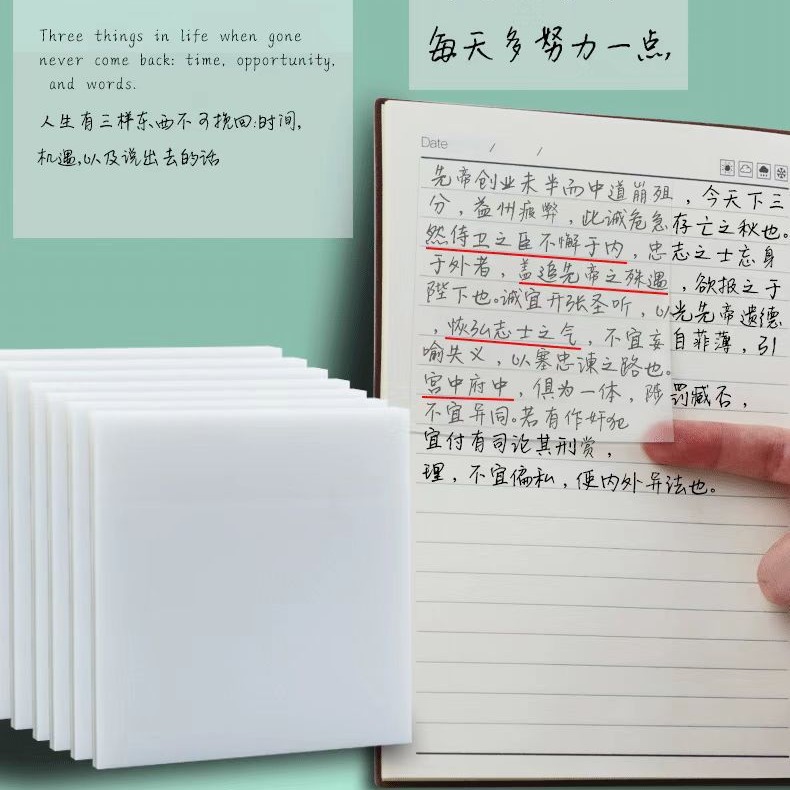 Three things in life when gone
never come back: time, opportunity,
and words.
人生有三样东西不可挽回:时间,
机遇,以及说出去的话
每天多努力一点,
Date / /
先帝创业未半而中道崩殂，今天下三
分，益州疲弊，此诚危急存亡之秋也。
然侍卫之臣不懈于内，忠志之士忘身
于外者，盖追先帝之殊遇，欲报之于
陛下也。诚宜开张圣听，以光先帝遗德
，恢弘志士之气，不宜妄自菲薄，引
喻失义，以塞忠谏之路也。
宫中府中，俱为一体，陟罚臧否，
不宜异同。若有作奸犯
宜付有司论其刑赏，
理，不宜偏私，使内外异法也。